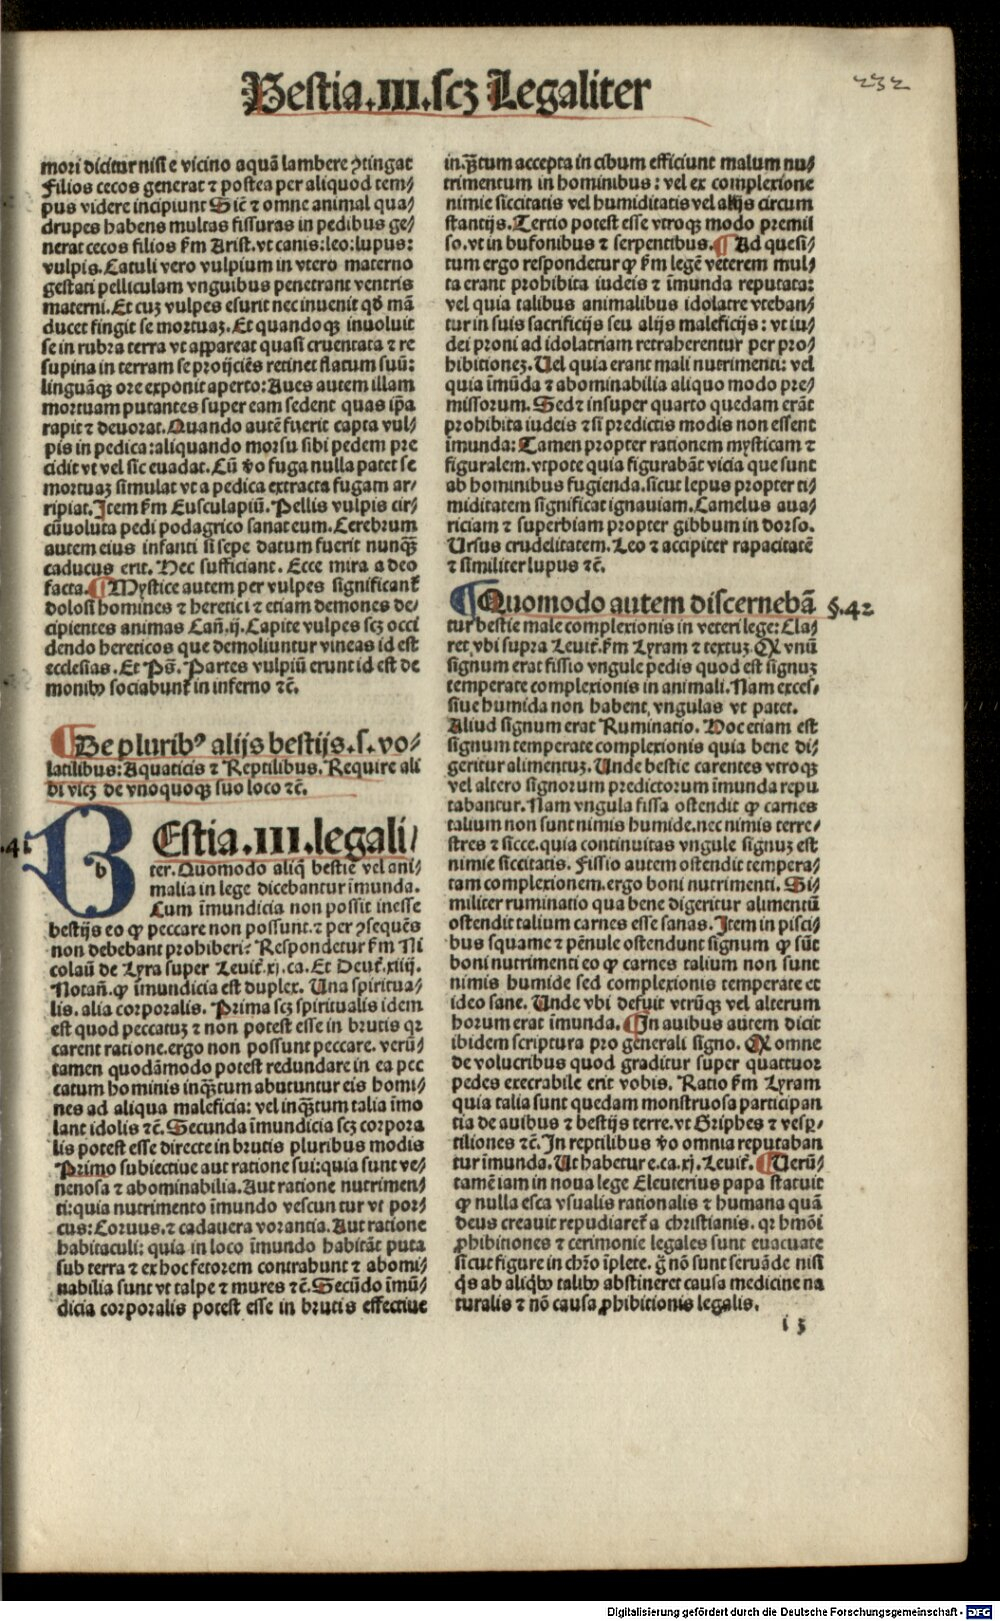 Bestia.III.scꝫ Legaliter
232
mori dicitur nisi e vicino aquā lambere ꝯtingat
Filios cecos generat ⁊ postea per aliquod tem⸗
pus videre incipiunt Sic̄ ⁊ omne animal qua⸗
drupes habens multas fissuras in pedibus ge⸗
nerat cecos filios ẜm Arist. vt canis: leo: lupus:
vulpis. Catuli vero vulpium in vtero materno
gestati pelliculam vnguibus penetrant ventris
materni. Et cuꝫ vulpes esurit nec inuenit qđ mā
ducet fingit se mortuaꝫ. Et quandoqꝫ inuoluit
se in rubra terra vt appareat quasi cruentata ⁊ re
supina in terram se proijciēs retinet flatum suū:
linguāqꝫ ore exponit aperto: Aues autem illam
mortuam putantes super eam sedent quas ip̄a
rapit ⁊ deuorat. Quando autē fuerit capta vul⸗
pis in pedica: aliquando morsu sibi pedem pre
cidit vt vel sic euadat. Cū ꝟo fuga nulla patet se
mortuaꝫ simulat vt a pedica extracta fugam ar⸗
ripiat. Item ẜm Eusculapiū. Pellis vulpis cir⸗
cūuoluta pedi podagrico sanat eum. Cerebrum
autem eius infanti si sepe datum fuerit nunqꝫ̄
caducus erit. Hec sufficiant. Ecce mira a deo
facta. ¶ Mystice autem per vulpes significant᷑
dolosi homines ⁊ heretici ⁊ etiam demones de⸗
cipientes animas Can̄.ij. Capite vulpes scꝫ occi
dendo hereticos que demoliuntur vineas id est
ecclesias. Et Ps̄. Partes vulpiū erunt id est de
monibꝰ sociabunt᷑ in inferno ⁊c̄.
¶ De pluribꝰ alijs bestijs.s.vo⸗
latilibus: Aquaticis ⁊ Reptilibus. Require ali
bi vicꝫ de vnoquoqꝫ suo loco ⁊c̄.
.41
BEstia.III.legali⸗
ter. Quomodo aliq̄ bestie vel ani⸗
malia in lege dicebantur īmunda.
Cum īmundicia non possit inesse
bestijs eo ꝙ peccare non possunt. ⁊ per ꝯsequēs
non debebant prohiberi? Respondetur ẜm Ni
colaū de Lyra super Leuit᷑.xj.ca. Et Deut᷑.xiiij.
Notan̄. ꝙ īmundicia est duplex. Una spiritua⸗
lis. alia corporalis. Prima scꝫ spiritualis idem
est quod peccatuꝫ ⁊ non potest esse in brutis qꝛ
carent ratione. ergo non possunt peccare. verū⸗
tamen quodāmodo potest redundare in ea pec
catum hominis inqꝫ̄tum abutuntur eis homi⸗
nes ad aliqua maleficia: vel inqꝫ̄tum talia īmo
lant idolis ⁊c̄. Secunda īmundicia scꝫ corpora
lis potest esse directe in brutis pluribus modis
Primo subiectiue aut ratione sui: quia sunt ve⸗
nenosa ⁊ abominabilia. Aut ratione nutrimen⸗
ti: quia nutrimento īmundo vescuntur vt por⸗
cus: Coruus. ⁊ cadauera vorantia. Aut ratione
habitaculi: quia in loco īmundo habitāt puta
sub terra ⁊ ex hoc fetorem contrahunt ⁊ abomi⸗
nabilia sunt vt talpe ⁊ mures ⁊c̄. Secūdo īmū⸗
dicia corporalis potest esse in brutis effectiue
in.qꝫ̄tum accepta in cibum efficiunt malum nu⸗
trimentum in hominibus: vel ex complexione
nimie siccitatis vel humiditatis vel alijs circum
stantijs. Tertio potest esse vtroqꝫ modo premis
so. vt in bufonibus ⁊ serpentibus. ¶ Ad quesi⸗
tum ergo respondetur ꝙ ẜm legē veterem mul⸗
ta erant prohibita iudeis ⁊ īmunda reputata:
vel quia talibus animalibus idolatre vteban⸗
tur in suis sacrificijs seu alijs maleficijs: vt iu⸗
dei proni ad idolatriam retraherentur per pro⸗
hibitioneꝫ. Uel quia erant mali nutrimenti: vel
quia īmūda ⁊ abominabilia aliquo modo pre⸗
missorum. Sed ⁊ insuper quarto quedam erāt
prohibita iudeis ⁊ si predictis modis non essent
īmunda: Tamen propter rationem mysticam ⁊
figuralem. vtpote quia figurabāt vicia que sunt
ab hominibus fugienda. sicut lepus propter ti⸗
miditatem significat ignauiam. Camelus aua⸗
riciam ⁊ superbiam propter gibbum in dorso.
Ursus crudelitatem. Leo ⁊ accipiter rapacitatē
⁊ similiter lupus ⁊c̄.
¶ Quomodo autem discernebā
§.42
tur bestie male complexionis in veteri lege: Cla⸗
ret vbi supra Leuit᷑. ẜm Lyram ⁊ textuꝫ. Q vnū
signum erat fissio vngule pedis quod est signuꝫ
temperate complexionis in animali. Nam exces⸗
siue humida non habent vngulas vt patet.
Aliud signum erat Ruminatio. Hoc etiam est
signum temperate complexionis quia bene di⸗
geritur alimentuꝫ. Unde bestie carentes vtroqꝫ
vel altero signorum predictorum īmunda repu
tabantur. Nam vngula fissa ostendit ꝙ carnes
talium non sunt nimis humide. nec nimis terre⸗
stres ⁊ sicce. quia continuitas vngule signuꝫ est
nimie siccitatis. Fissio autem ostendit tempera⸗
tam complexionem. ergo boni nutrimenti. Si⸗
militer ruminatio qua bene digeritur alimentū
ostendit talium carnes esse sanas. Item in pisci⸗
bus squame ⁊ pēnule ostendunt signum ꝙ sūt
boni nutrimenti eo ꝙ carnes talium non sunt
nimis humide sed complexionis temperate et
ideo sane. Unde vbi defuit vtrūqꝫ vel alterum
horum erat īmunda. ¶ In auibus autem dicit
ibidem scriptura pro generali signo. Q omne
de volucribus quod graditur super quattuor
pedes execrabile erit vobis. Ratio ẜm Lyram
quia talia sunt quedam monstruosa participan
tia de auibus ⁊ bestijs terre. vt Griphes ⁊ vesꝑ⸗
tiliones ⁊c̄. In reptilibus ꝟo omnia reputaban
tur īmunda. Ut habetur e.ca.xj. Leuit᷑. ¶ Uerū⸗
tamē iam in noua lege Eleuterius papa statuit
ꝙ nulla esca vsualis rationalis ⁊ humana quā
deus creauit repudiaret᷑ a christianis. qꝛ hmōi
ꝓhibitiones ⁊ cerimonie legales sunt euacuate
sicut figure in chr̄o īplete. g̊ nō sunt seruāde nisi
q̄s ab aliqibꝰ talibꝰ abstineret causa medicine na
turalis ⁊ nō causa ꝓhibitionis legalis.
i 3
Digitalisierung gefördert durch die Deutsche Forschungsgemeinschaft - DFG